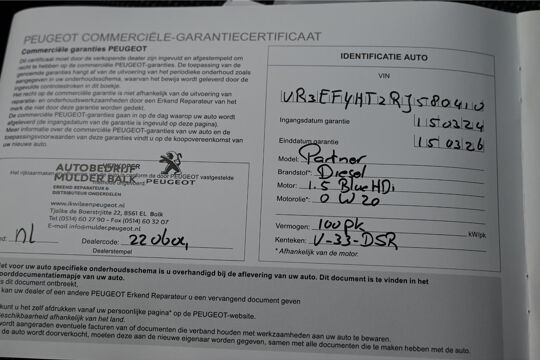 PEUGEOT COMMERCIËLE-GARANTIECERTIFICAAT
Commerciële garanties PEUGEOT
Dit certificaat moet door de verkopende dealer zijn ingevuld en afgestempeld om
recht te hebben op de commerciële PEUGEOT-garanties. De toepassing van de
genoemde garanties hangt af van de uitvoering van het periodieke onderhoud zoals
aangegeven in uw onderhoudsschema, waarvan het bewijs wordt geleverd door de
ingevulde controlestroken in dit boekje.
Het recht op de commerciële garantie is niet afhankelijk van de uitvoering van
reparatie- en onderhoudswerkzaamheden door een Erkend Reparateur van het
merk die niet door deze garantie worden gedekt.
De commerciële PEUGEOT-garanties gaan in op de dag waarop uw auto wordt
afgeleverd (de ingangsdatum van de garantie is ingevuld op deze pagina).
Meer informatie over de commerciële PEUGEOT-garanties van uw auto en de
toepassingsvoorwaarden van deze garanties vindt u op de koopovereenkomst van
uw nieuwe auto.
VERKOPER
AUTOBEDRIJF
MULDER BALK
ERKEND REPARATEUR &
DISTRIBUTEUR ONDERDELEN
PEUGEOT
www.ikwileenpeugeot.nl
Tjalke de Boerstrjitte 22, 8561 EL Balk
Tel (0514) 60 27 90 - Fax (0514) 60 32 07
E-mail info@mulder.peugeot.nl
nl
Dealercode:
Dealerstempel
IDENTIFICATIE AUTO
VIN
VR3EFYHT2RJ580410
Ingangsdatum garantie
150324
Einddatum garantie
150326
Model: Partner
Brandstof*: Diesel
Motor: 1.5 BlueHDi
Motorolie*: 0W20
Vermogen: 100pk kW/pk
Kenteken: V-33-DSR
* Afhankelijk van de motor.
Het voor uw auto specifieke onderhoudsschema is u overhandigd bij de aflevering van uw auto. Dit document is te vinden in het
boorddocumentatiemapje van uw auto.
dit document ontbreekt,
kan uw dealer of een andere PEUGEOT Erkend Reparateur u een vervangend document geven
kunt u het zelf afdrukken vanaf uw persoonlijke pagina* op de PEUGEOT-website.
beschikbaarheid afhankelijk van het land.
wordt aangeraden eventuele facturen van of documenten die verband houden met werkzaamheden aan uw auto te bewaren.
de auto wordt doorverkocht, moeten deze aan de nieuwe eigenaar worden gegeven, samen met alle documenten die te maken hebben met de auto.